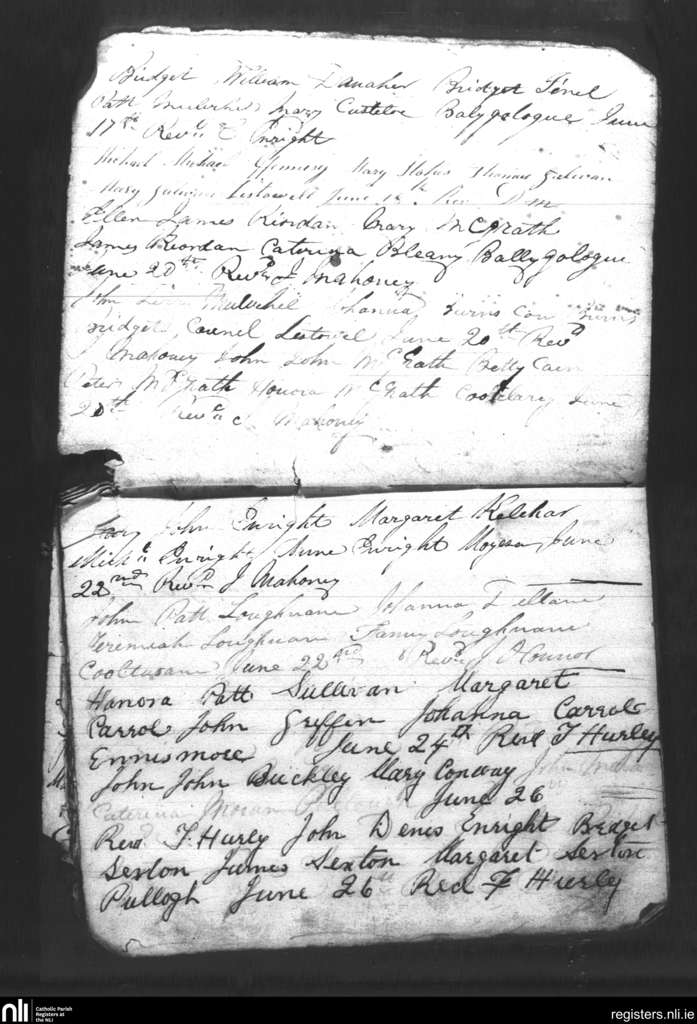 Bridget William Danaher Bridget
Patt Mulvihil Mary Costeloe Balygologue June
17th Revd C Enright
Michael Michael Hennesy Mary Stokes Thomas Galivan
Mary Listowell June Rev
Ellen James Riordan Mary McGrath
James Riordan Caterina Bleany Ballygologue
June 20th Revd J Mahoney
John Mulvehel Burns Con Burns
Bridget Counel Lestowel June 20th Revd
J Mahoney John John McGrath Betty Cain
Peter McGrath Honora McGrath Coolclary June
20th Revd J Mahoney
Mary John Enright Margaret Kelehar
Mich Enright Anne Enright Moyesa June
22nd Revd J Mahoney
John Patt Loughnane Johanna
Jeremiah Loughnan Fanny Loughnane
June 22nd Revd J OConnor
Hanora Patt Sullivan Margaret
Carrol John Greffen Johanna Carrol
Ennismore June 24th Revd T Hurley
John John Buckley Mary Conway John
Caterina Moran June 26th
Revd T. Hurly John Denis Enright Bridget
Sexton James Sexton Margaret Sexton
Pullogh June 26th Revd T Hurly
nli
Catholic Parish
Registers at
the NLI
registers.nli.ie